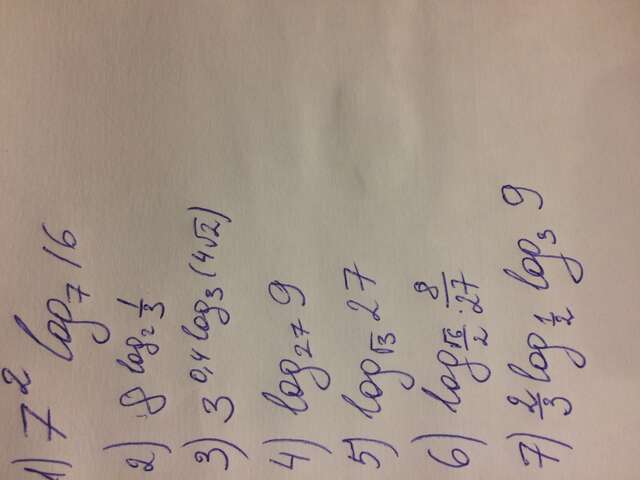 1) 7² log₇ 16
2) 8^(log₂ 1/3)
3) 3^(0,4 log₃ (4√2))
4) log₂₇ 9
5) log_√3 27
6) log_(√6/2) 8/27
7) 2/3 log_(1/2) log₃ 9